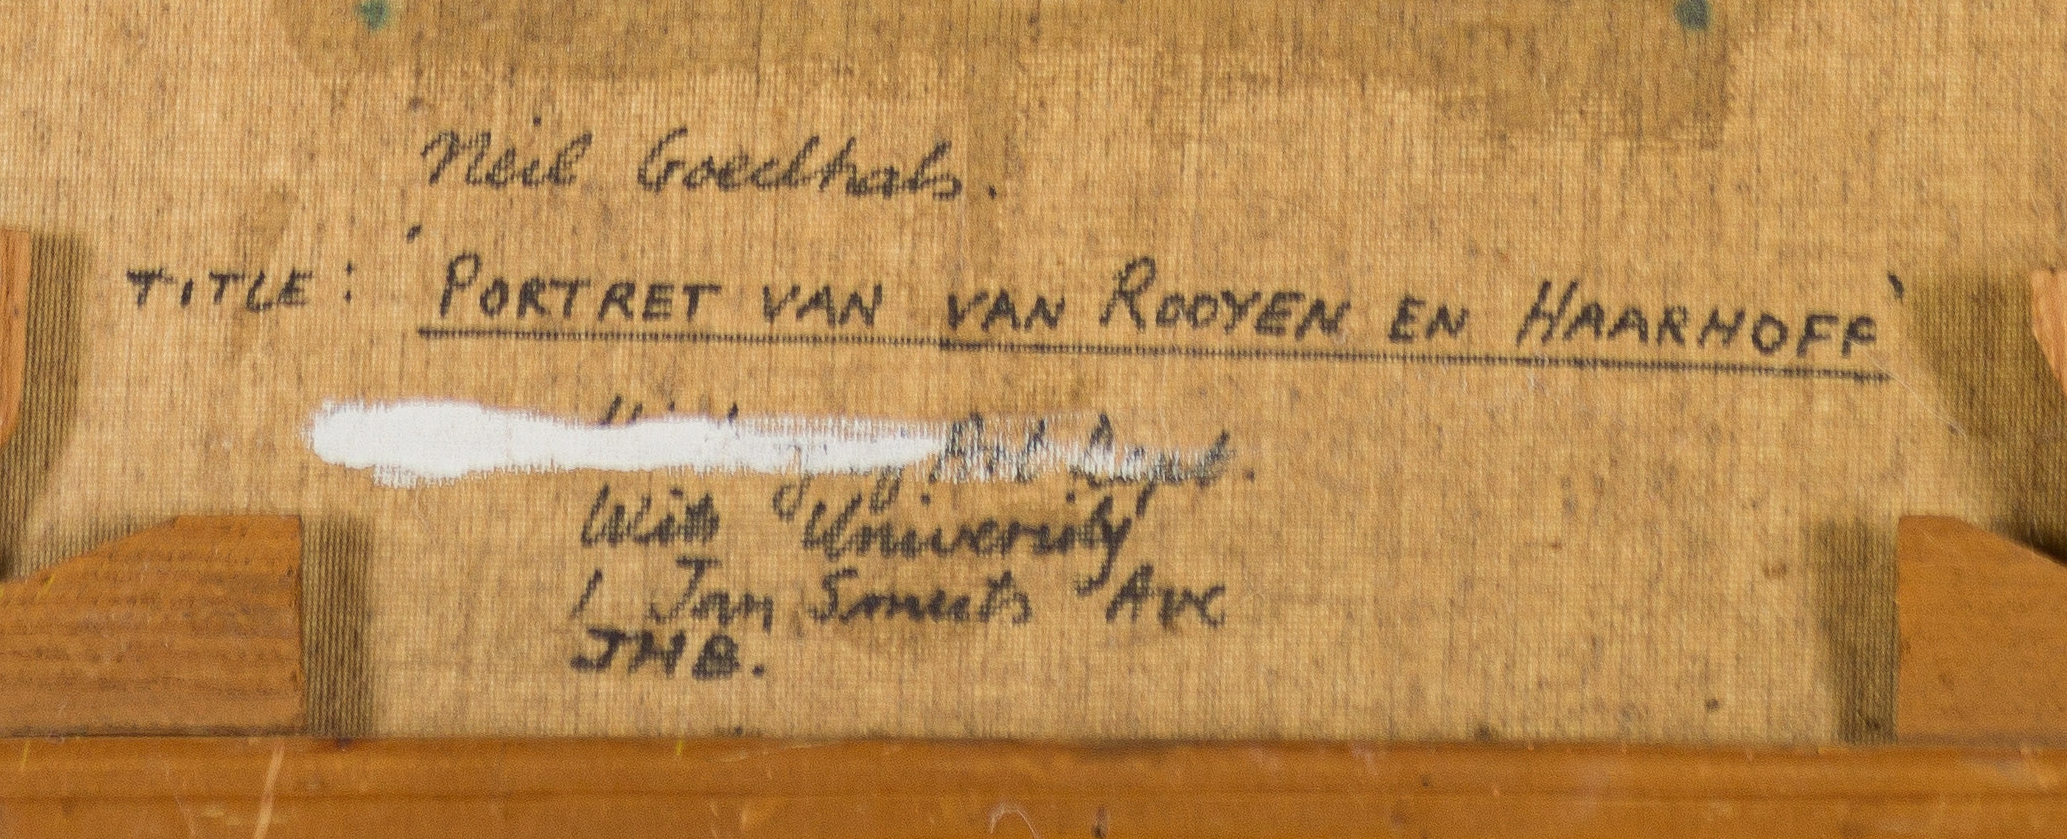 Neil Goedhals.
TITLE: 'PORTRET VAN VAN ROOYEN EN HAARHOFF'
Art Dept.
Wits University
1 Jan Smuts Ave
JHB.